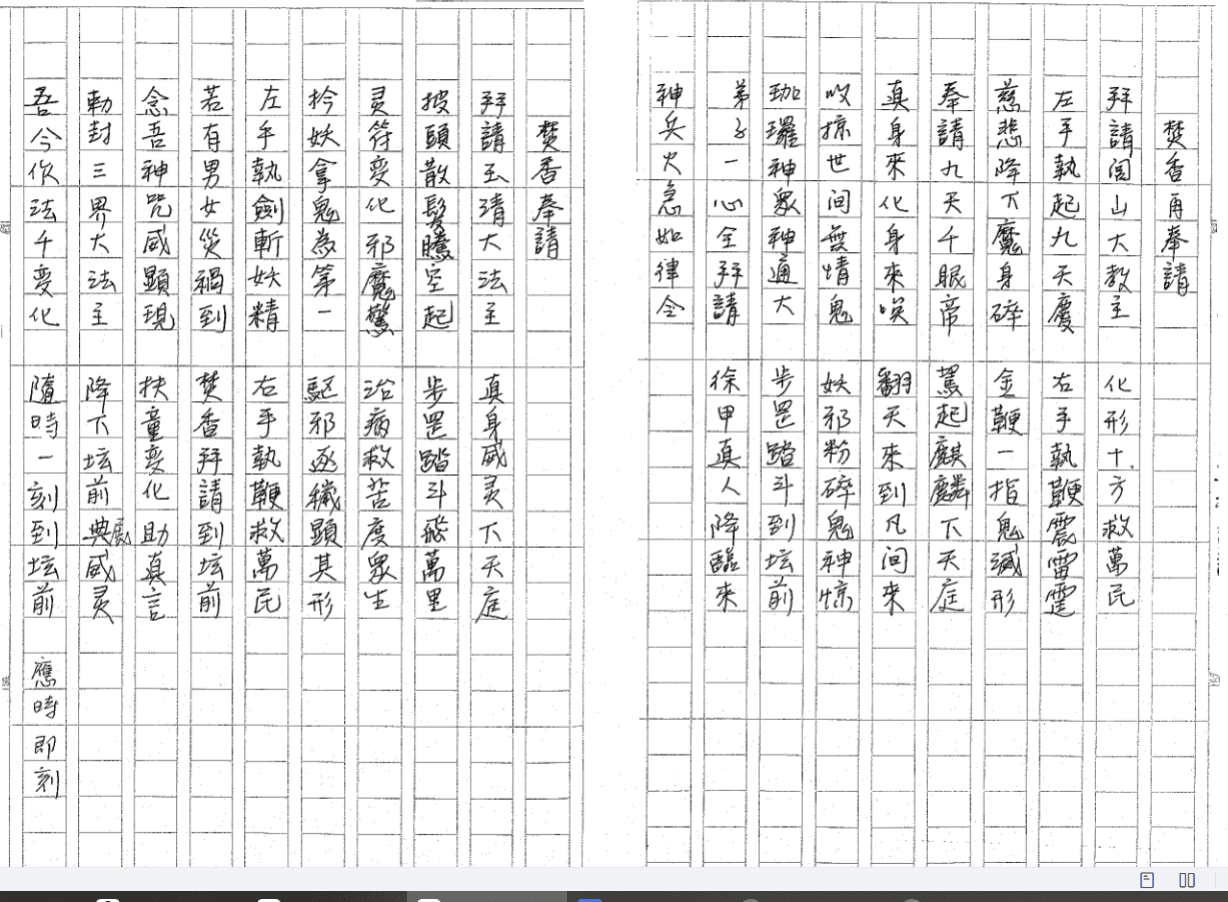 焚香再奉請
拜請閭山大教主　化形十方救萬民
左手執起九天慶　右手執鞭震雷霆
慈悲降下魔身碎　金鞭一指鬼滅形
奉請九天千眼帝　駕起麒麟下天庭
真身來化身來喚　翻天來到凡间來
收掠世间無情鬼　妖邪粉碎鬼神惊
珈瓓神眾神通大　步罡踏斗到坛前
弟子一心全拜請　徐甲真人降臨來
神兵火急如律令
焚香奉請
拜請玉清大法主　真身威灵下天庭
披頭散髮騰空起　步罡踏斗飛萬里
灵符变化邪魔驚　治病救苦度眾生
扲妖拿鬼為第一　驅邪逐穢顯其形
左手執劍斬妖精　右手執鞭救萬民
若有男女災禍到　焚香拜請到坛前
念吾神咒威顯現　扶童变化助真言
勅封三界大法主　降下坛前典展威灵
吾今作法千变化　隨時一刻到坛前　應時即刻